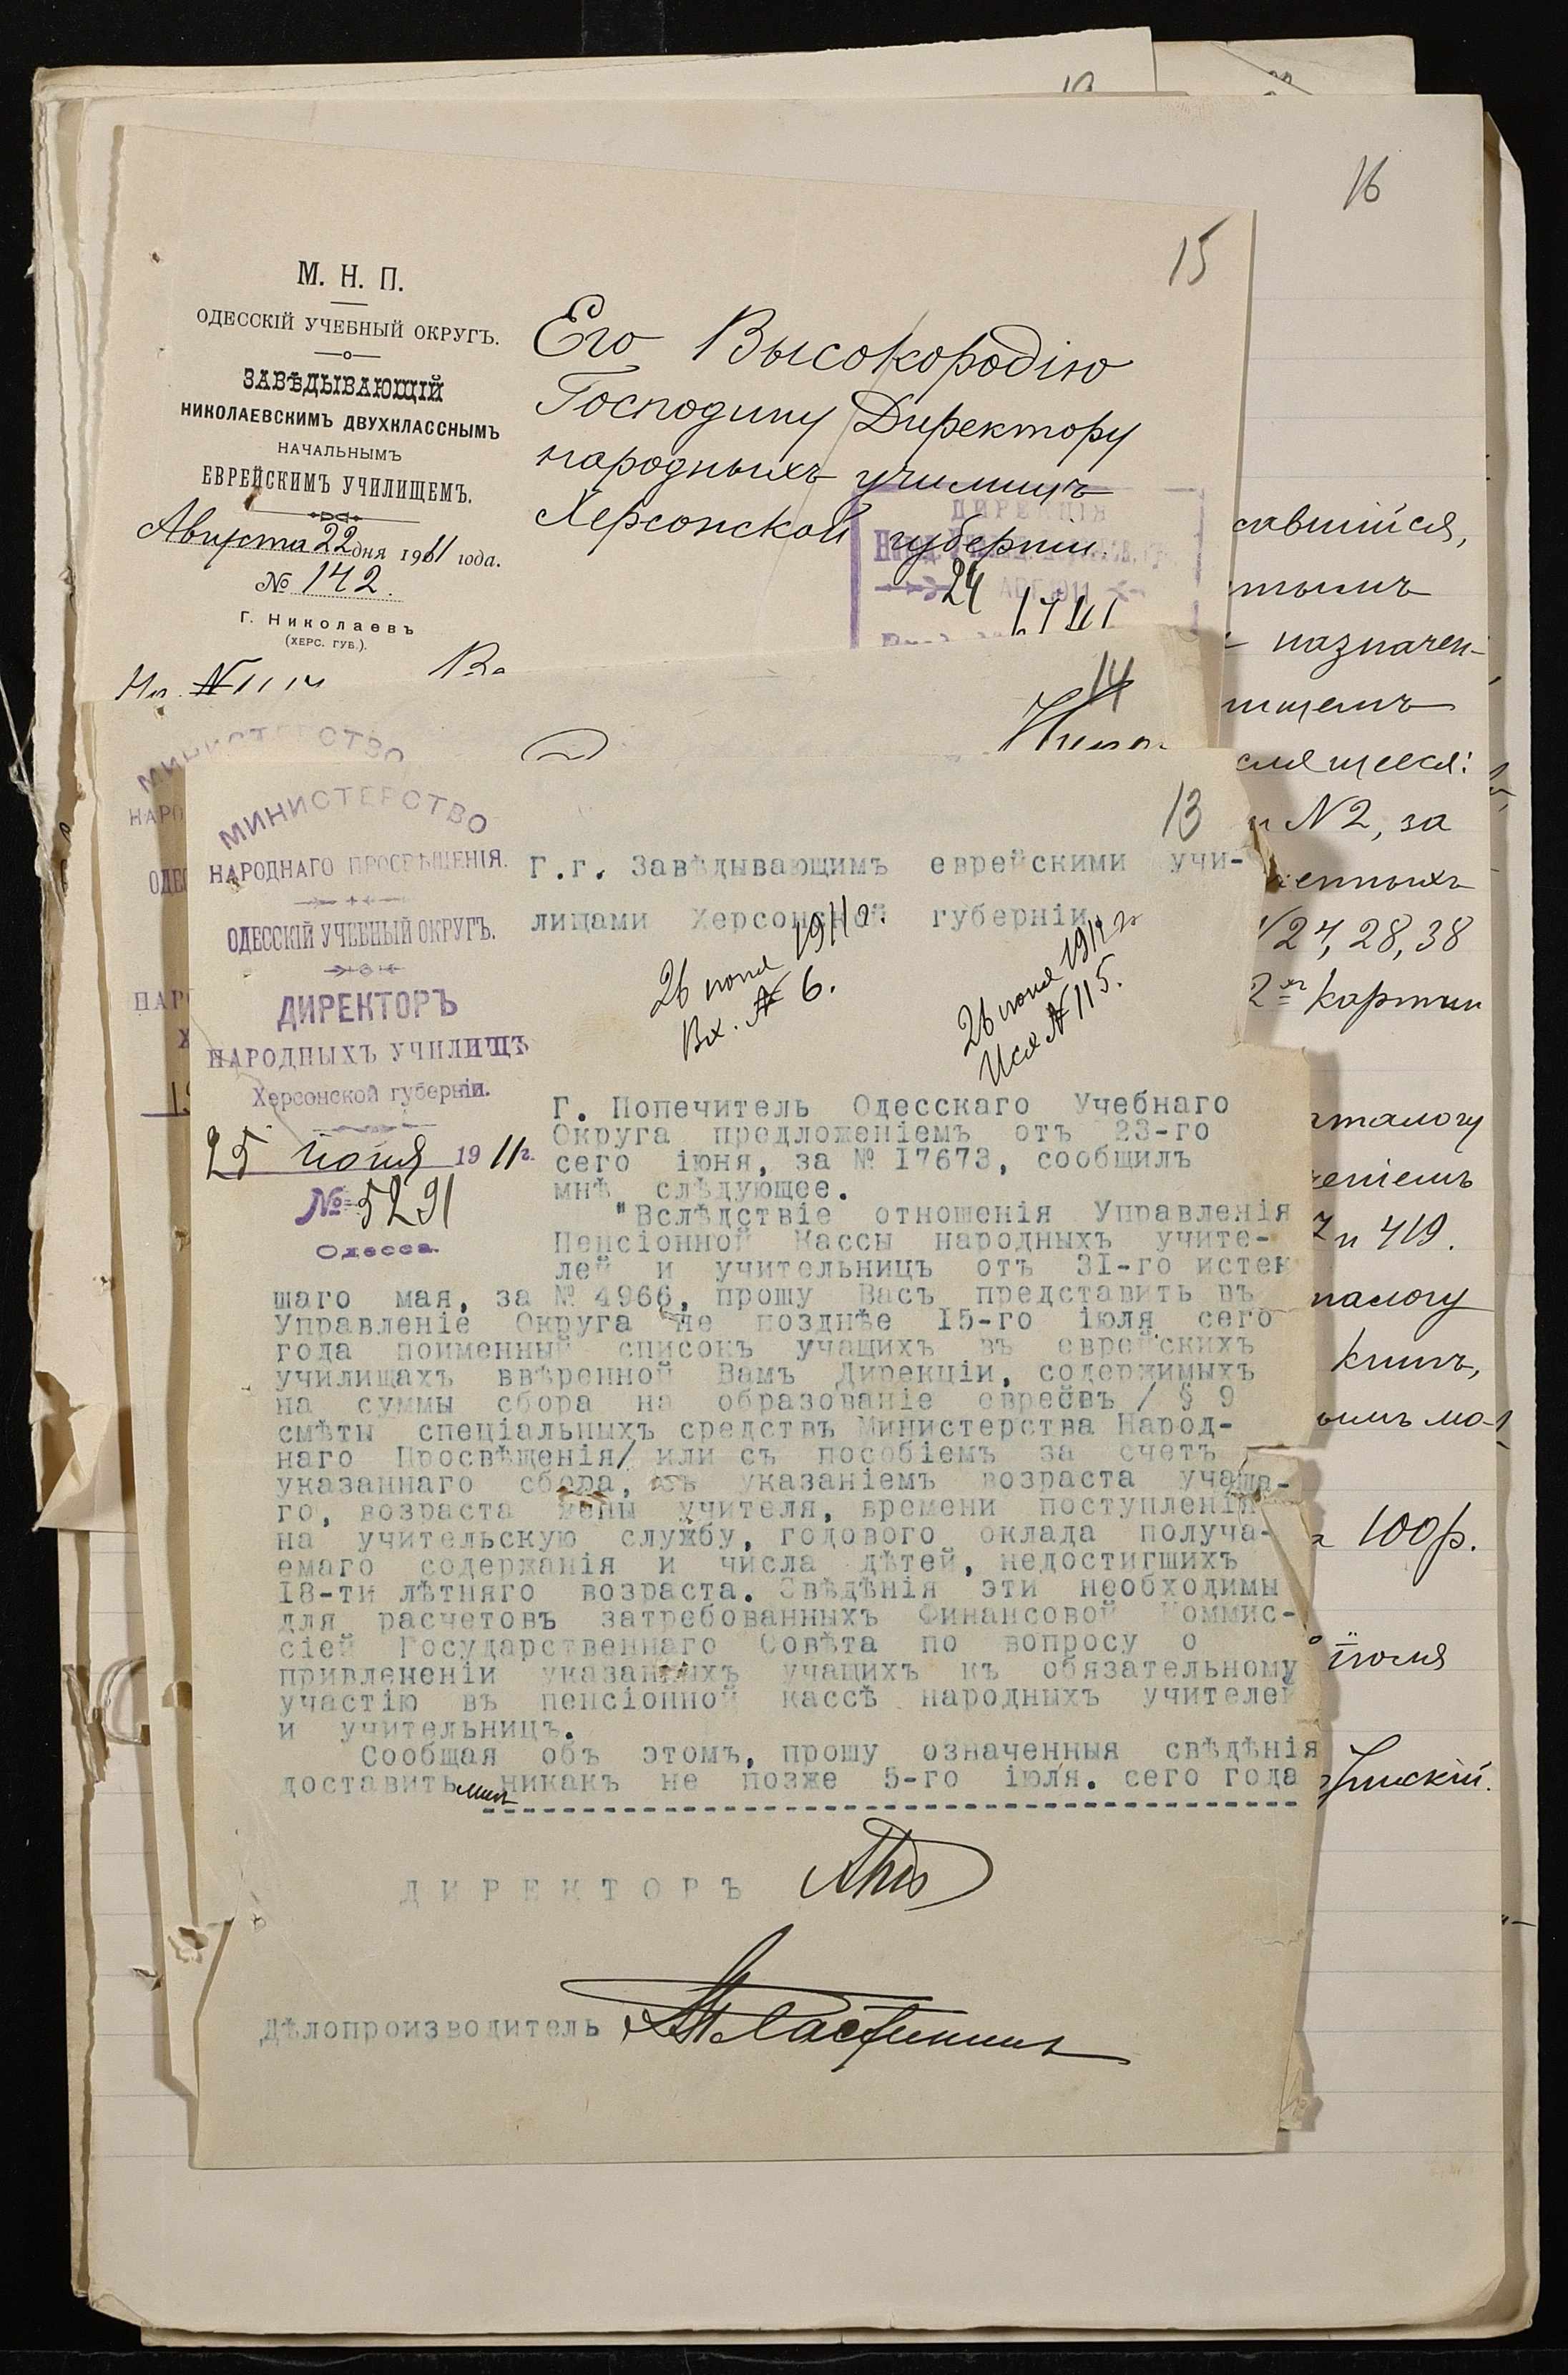 16
15
М. Н. П.
ОДЕССКІЙ УЧЕБНЫЙ ОКРУГЪ.
ЗАВѢДЫВАЮЩІЙ
НИКОЛАЕВСКИМЪ ДВУХКЛАССНЫМЪ
НАЧАЛЬНЫМЪ
ЕВРЕЙСКИМЪ УЧИЛИЩЕМЪ.
Августа 22 дня 1911 года.
№ 142.
Г. Николаевъ
(ХЕРС. ГУБ.).
Его Высокородію
Господину Директору
народныхъ училищъ
Херсонской губерніи.
ДИРЕКЦІЯ
24 АВГ. 1911
14
МИНИСТЕРСТВО
13
МИНИСТЕРСТВО
НАРОДНАГО ПРОСВѢЩЕНІЯ.
ОДЕССКІЙ УЧЕБНЫЙ ОКРУГЪ.
ДИРЕКТОРЪ
НАРОДНЫХЪ УЧИЛИЩЪ
Херсонской губерніи.
25 іюня 1911 г.
№ 5291
Одесса.
Г.г. Завѣдывающимъ еврейскими учи-
лищами Херсонской губерніи.
26 іюня 1911 г.
Вх. № 6.
26 іюня 1911 г.
Исх № 115.
Г. Попечитель Одесскаго Учебнаго
Округа предложеніемъ отъ 23-го
сего іюня, за № 17673, сообщилъ
мнѣ слѣдующее.
"Вслѣдствіе отношенія Управленія
Пенсіонной Кассы народныхъ учите-
лей и учительницъ отъ 31-го истек
шаго мая, за № 4966, прошу Васъ представить въ
Управленіе Округа не позднѣе 15-го іюля сего
года поименный списокъ учащихъ въ еврейскихъ
училищахъ ввѣренной Вамъ Дирекціи, содержимыхъ
на суммы сбора на образованіе евреевъ / § 9
смѣты спеціальныхъ средствъ Министерства Народ-
наго Просвѣщенія/ или съ пособіемъ за счетъ
указаннаго сбора, съ указаніемъ возраста учаща-
го, возраста жены учителя, времени поступленія
на учительскую службу, годового оклада получа-
емаго содержанія и числа дѣтей, недостигшихъ
18-ти лѣтняго возраста. Свѣдѣнія эти необходимы
для расчетовъ затребованныхъ Финансовой Коммис-
сіей Государственнаго Совѣта по вопросу о
привлененіи указанныхъ учащихъ къ обязательному
участію въ пенсіонной кассѣ народныхъ учителей
и учительницъ.
Сообщая объ этомъ, прошу означенныя свѣдѣнія
доставить мнѣ никакъ не позже 5-го іюля. сего года
ДИРЕКТОРЪ
Дѣлопроизводитель
назначен-
№ 2, за
27, 28, 38
картин
и 419.
книгъ,
100 р.
іюля